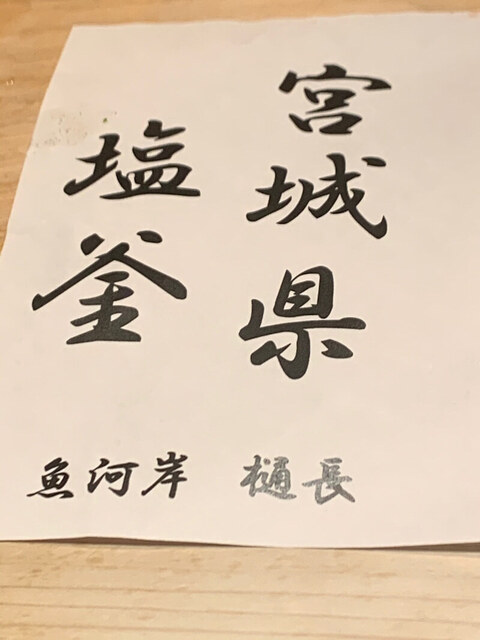 宮城県
塩釜
魚河岸 樋長